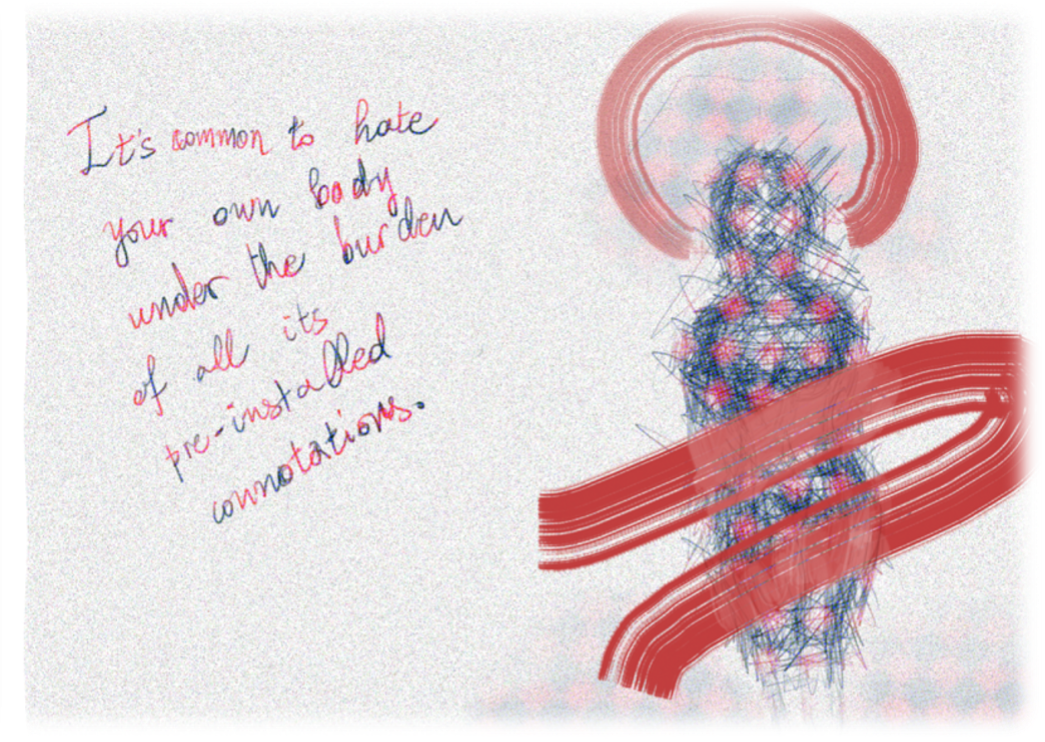 It's common to hate
your own body
under the burden
of all its
pre-installed
connotations.